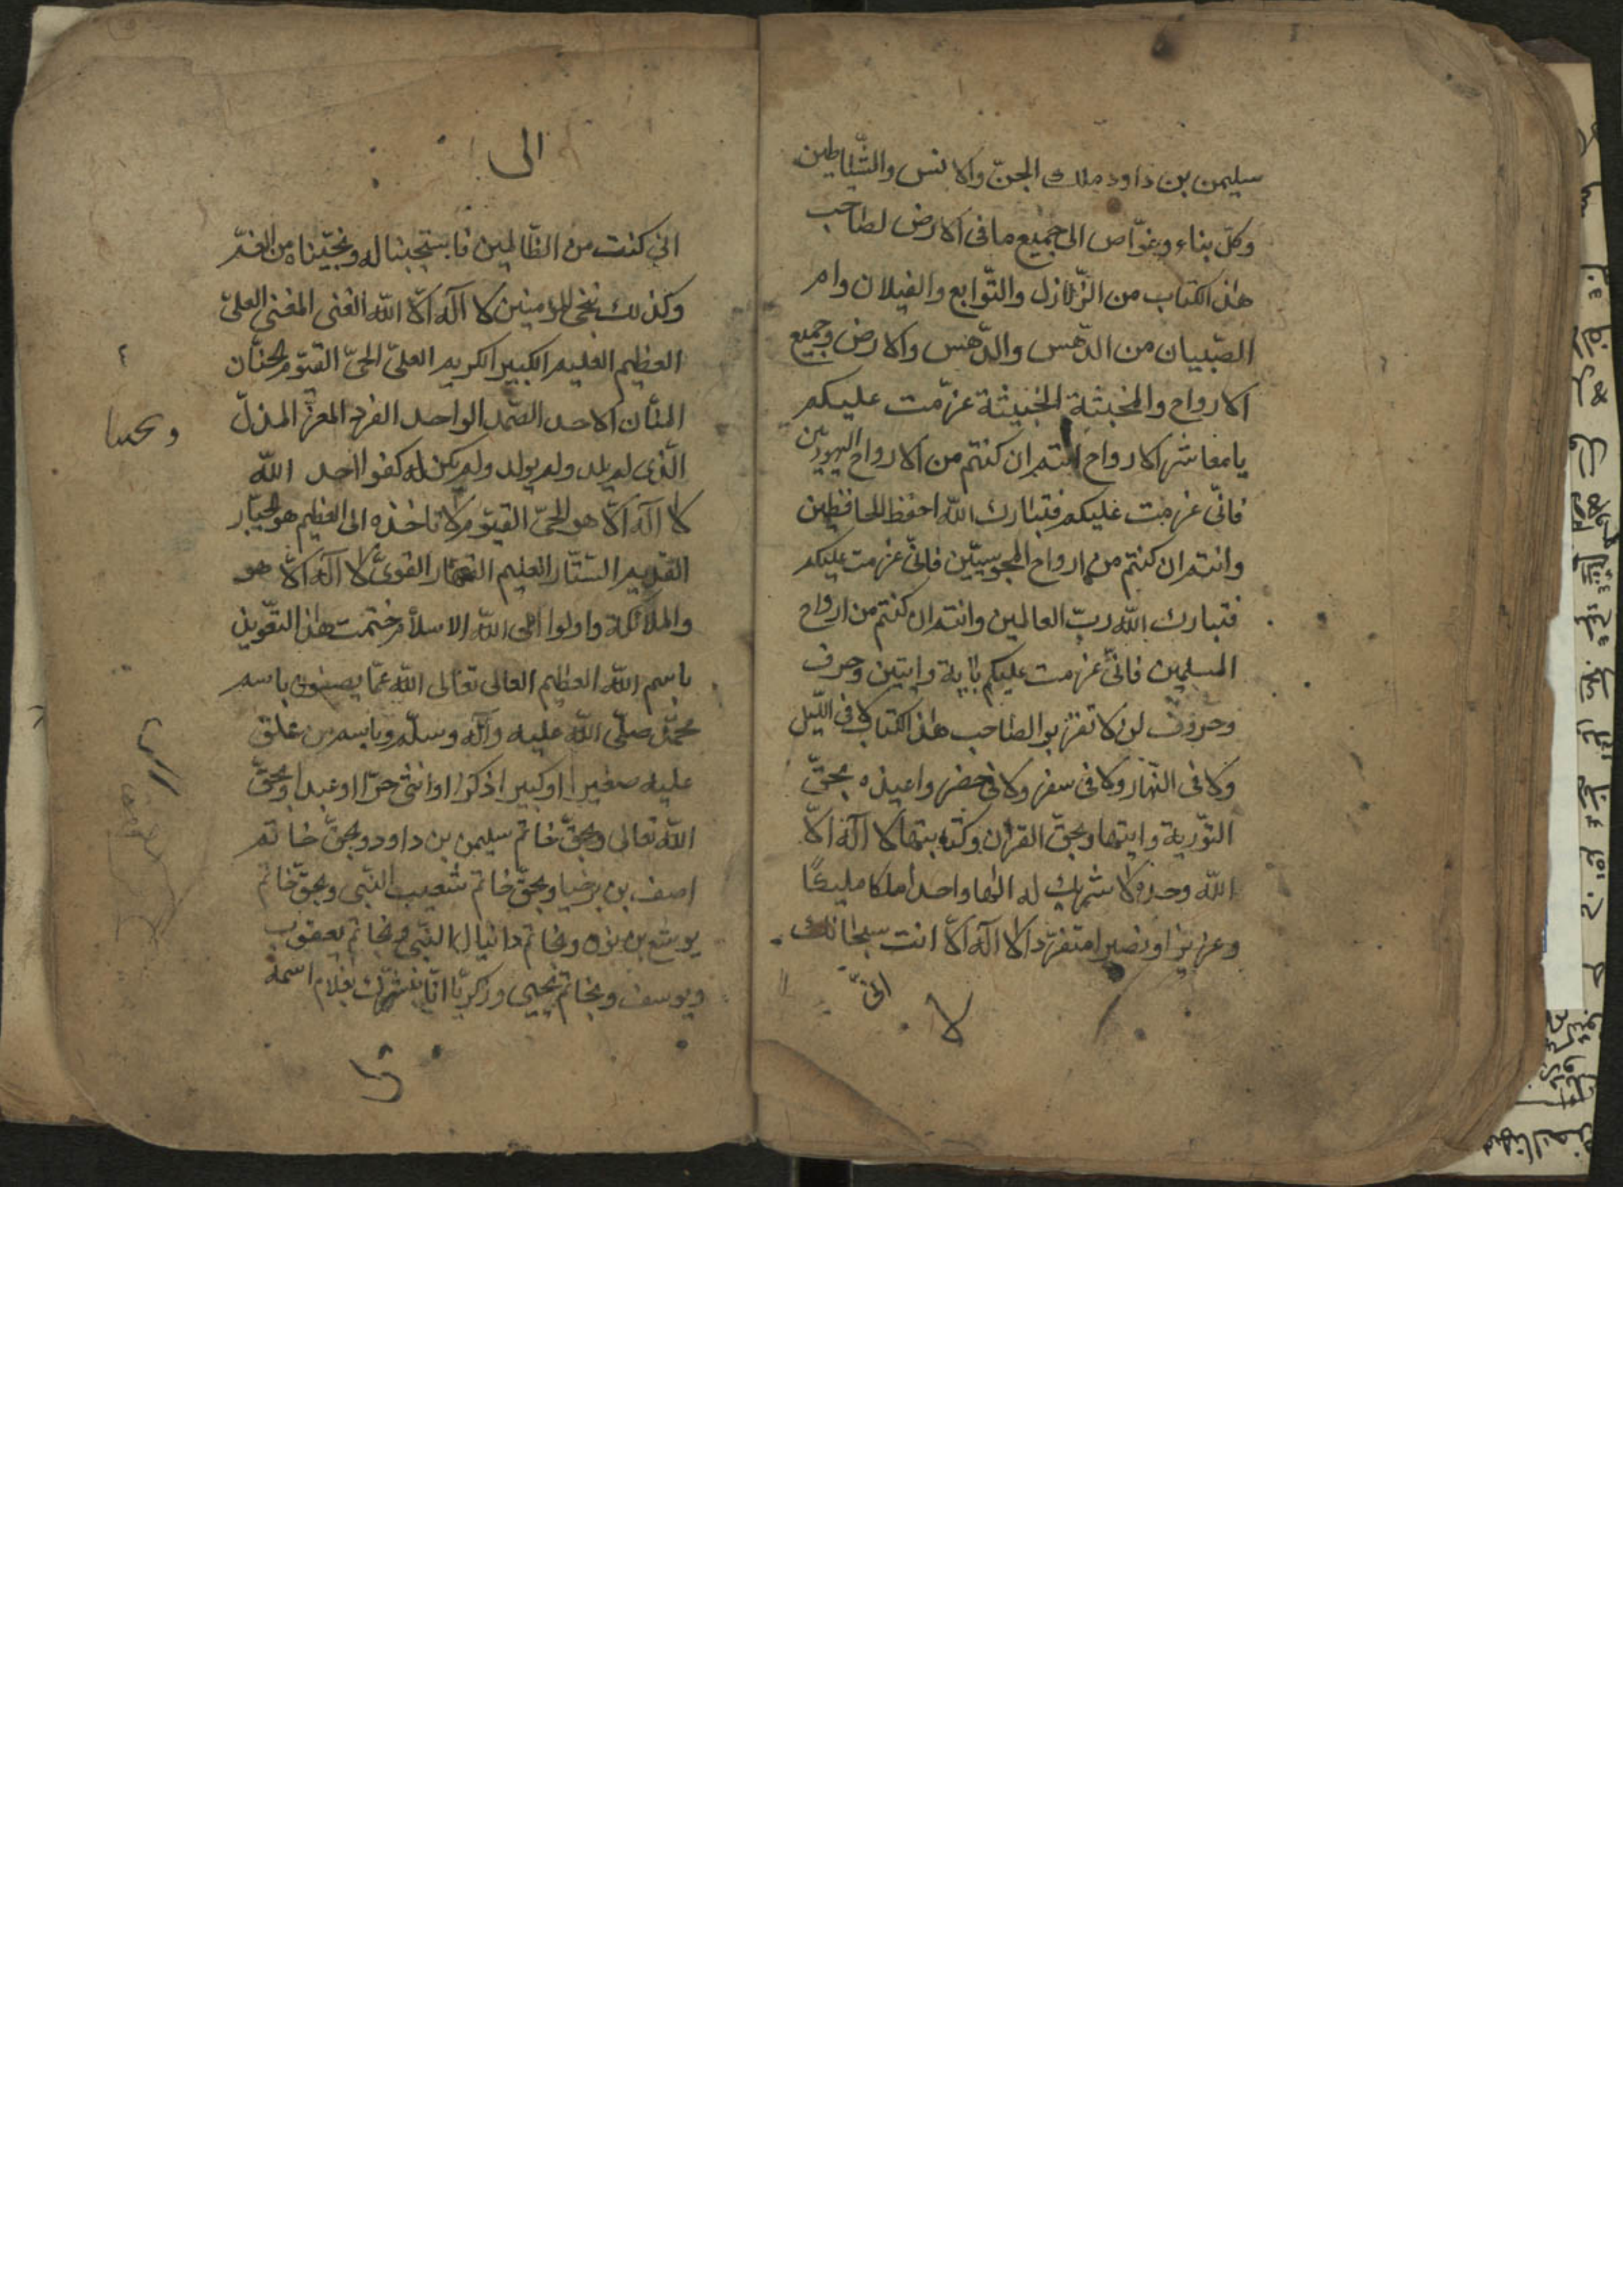 سليمن بن داود ملك الجنّ والانس والشّياطين
وكلّ بناء وغوّاص الى جميع ما فى الارض لصاحب
هذا الكتاب من الزّلازل والتّوابع والغيلان وام
الصّبيان من الدّهس والدّهنس والارض وجميع
الارواح والمخبثة الخبيثة عزّمت عليكم
يا معاشر الارواح انتم ان كنتم من الارواح اليهوديّين
فانّى عزمت عليكم فتبارك الله احفظ للحافظين
وانتم ان كنتم من ارواح المجوسيّين فانّى عزمت عليكم
فتبارك الله ربّ العالمين وانتم ان كنتم من ارواح
المسلمين فانّى عزمت عليكم باية وايتين وحرف
وحروف لن لا تقربوا لصاحب هذا الكتاب لا فى اللّيل
ولا فى النّهار ولا فى سفر ولا فى حضر واعيذه بحقّ
التّورية وايتها وبحقّ القران وكتابتها لا اله الاّ
الله وحده لا شريك له الها واحدا ملكا مليكًا
وعزيزا ونصيرا متفرّدا لا اله الاّ انت سبحانك
انّى
لا
الى
انى كنت من الظّالمين فاستجبنا له ونجّيناه من الغمّ
وكذلك ننجى المؤمنين لا اله الاّ الله الغنى المغنى العلىّ
العظيم العليم الكبير الكريم العلىّ الحىّ القيّوم الحنّان
المنّان الاحد الصّمد الواحد الفرد المعزّ المذلّ
الّذى لم يلد ولم يولد ولم يكن له كفوا احد الله
لا اله الاّ هو الحىّ القيّوم لا تاخذه الى العظيم هو الجبّار
القديم السّتّار العليم القهّار القوىّ لا اله الاّ هو
والملائكة واولوا الى الله الاسلام ختمت هذا التّعويذ
باسم الله العظيم العالى تعالى الله عمّا يصفون باسم
محمّد صلّى الله عليه وآله وسلّم وباسم من علق
عليه صغيرا او كبيرا ذكرا او انثى حرّا او عبدا وبحقّ
الله تعالى وبحقّ خاتم سليمن بن داود وبحقّ خاتم
اصف بن برخيا وبحقّ خاتم شعيب النّبى وبحقّ خاتم
يوشع بن نون وبخاتم دانيال النّبى وبخاتم يعقوب
ويوسف وبخاتم يحيى وزكريّا انّا نبشّرك بغلام اسمه